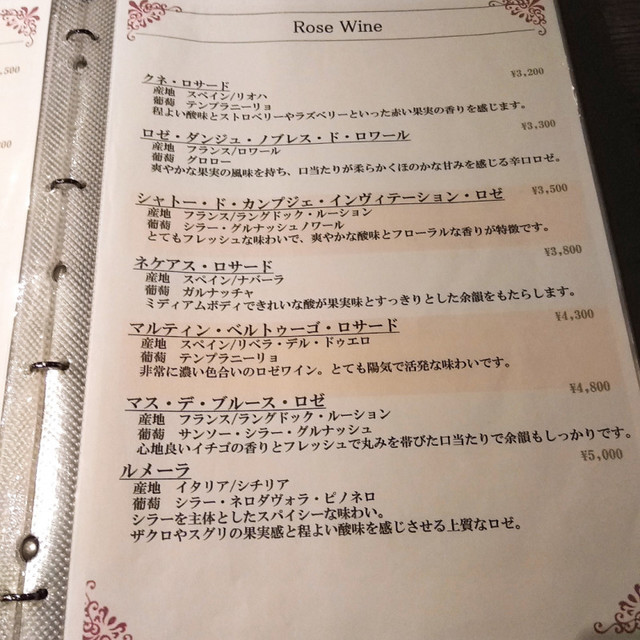 Rose Wine
,500
クネ・ロサード ¥3,200
産地 スペイン/リオハ
葡萄 テンプラニーリョ
程よい酸味とストロベリーやラズベリーといった赤い果実の香りを感じます。
ロゼ・ダンジュ・ノブレス・ド・ロワール ¥3,300
産地 フランス/ロワール
葡萄 グロロー
爽やかな果実の風味を持ち、口当たりが柔らかくほのかな甘みを感じる辛口ロゼ。
シャトー・ド・カンプジェ・インヴィテーション・ロゼ ¥3,500
産地 フランス/ラングドック・ルーション
葡萄 シラー・グルナッシュノワール
とてもフレッシュな味わいで、爽やかな酸味とフローラルな香りが特徴です。
ネケアス・ロサード ¥3,800
産地 スペイン/ナバーラ
葡萄 ガルナッチャ
ミディアムボディできれいな酸が果実味とすっきりとした余韻をもたらします。
マルティン・ベルトゥーゴ・ロサード ¥4,300
産地 スペイン/リベラ・デル・ドゥエロ
葡萄 テンプラニーリョ
非常に濃い色合いのロゼワイン。とても陽気で活発な味わいです。
マス・デ・ブルース・ロゼ ¥4,800
産地 フランス/ラングドック・ルーション
葡萄 サンソー・シラー・グルナッシュ
心地良いイチゴの香りとフレッシュで丸みを帯びた口当たりで余韻もしっかりです。
ルメーラ ¥5,000
産地 イタリア/シチリア
葡萄 シラー・ネロダヴォラ・ピノネロ
シラーを主体としたスパイシーな味わい。
ザクロやスグリの果実感と程よい酸味を感じさせる上質なロゼ。